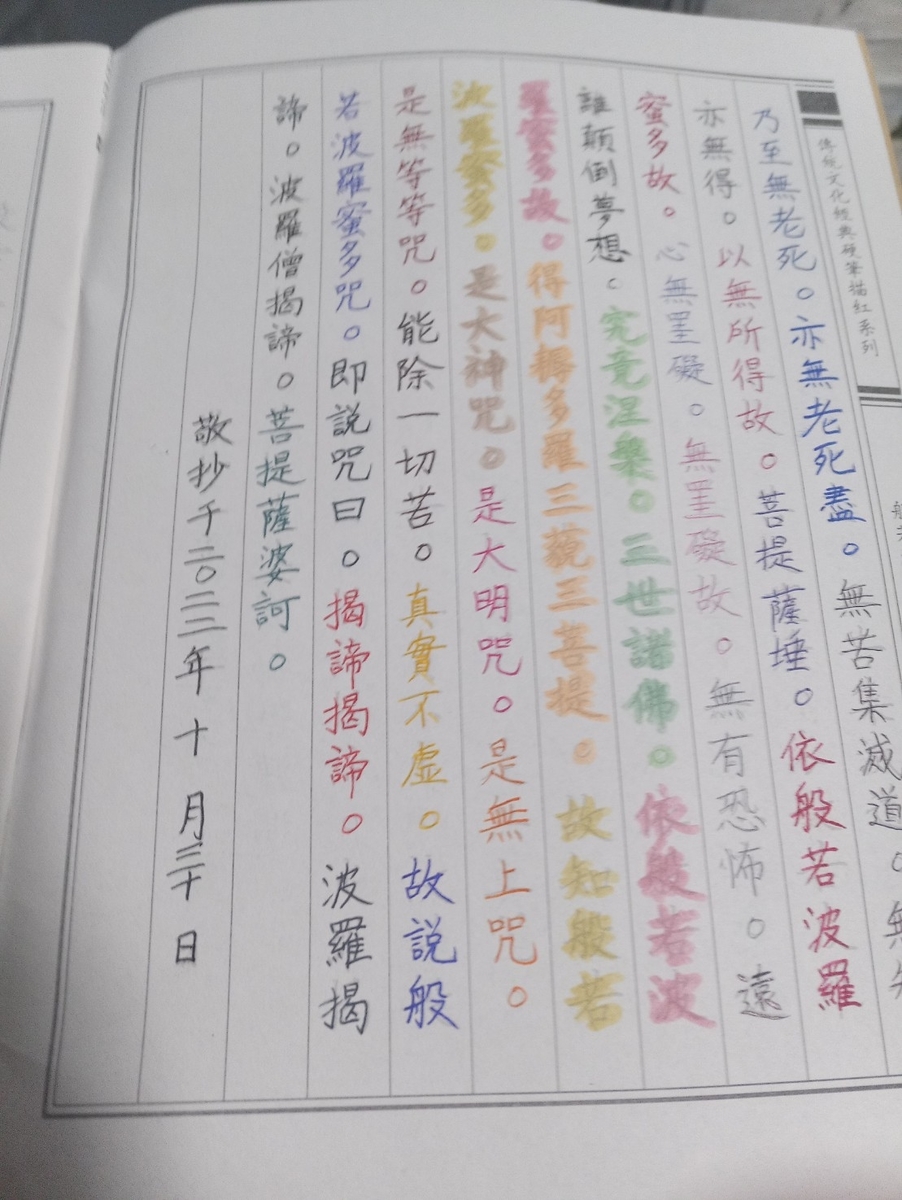 傳統文化經典硬筆描紅系列
乃至無老死。亦無老死盡。無苦集滅道。無
亦無得。以無所得故。菩提薩埵。依般若波羅
蜜多故。心無罣礙。無罣礙故。無有恐怖。遠
誰顛倒夢想。究竟涅槃。三世諸佛。依般若波
羅蜜多故。得阿耨多羅三藐三菩提。故知般若
波羅蜜多。是大神咒。是大明咒。是無上咒。
是無等等咒。能除一切苦。真實不虛。故說般
若波羅蜜多咒。即說咒曰。揭諦揭諦。波羅揭
諦。波羅僧揭諦。菩提薩婆訶。
敬抄于二〇二二年十月三十日